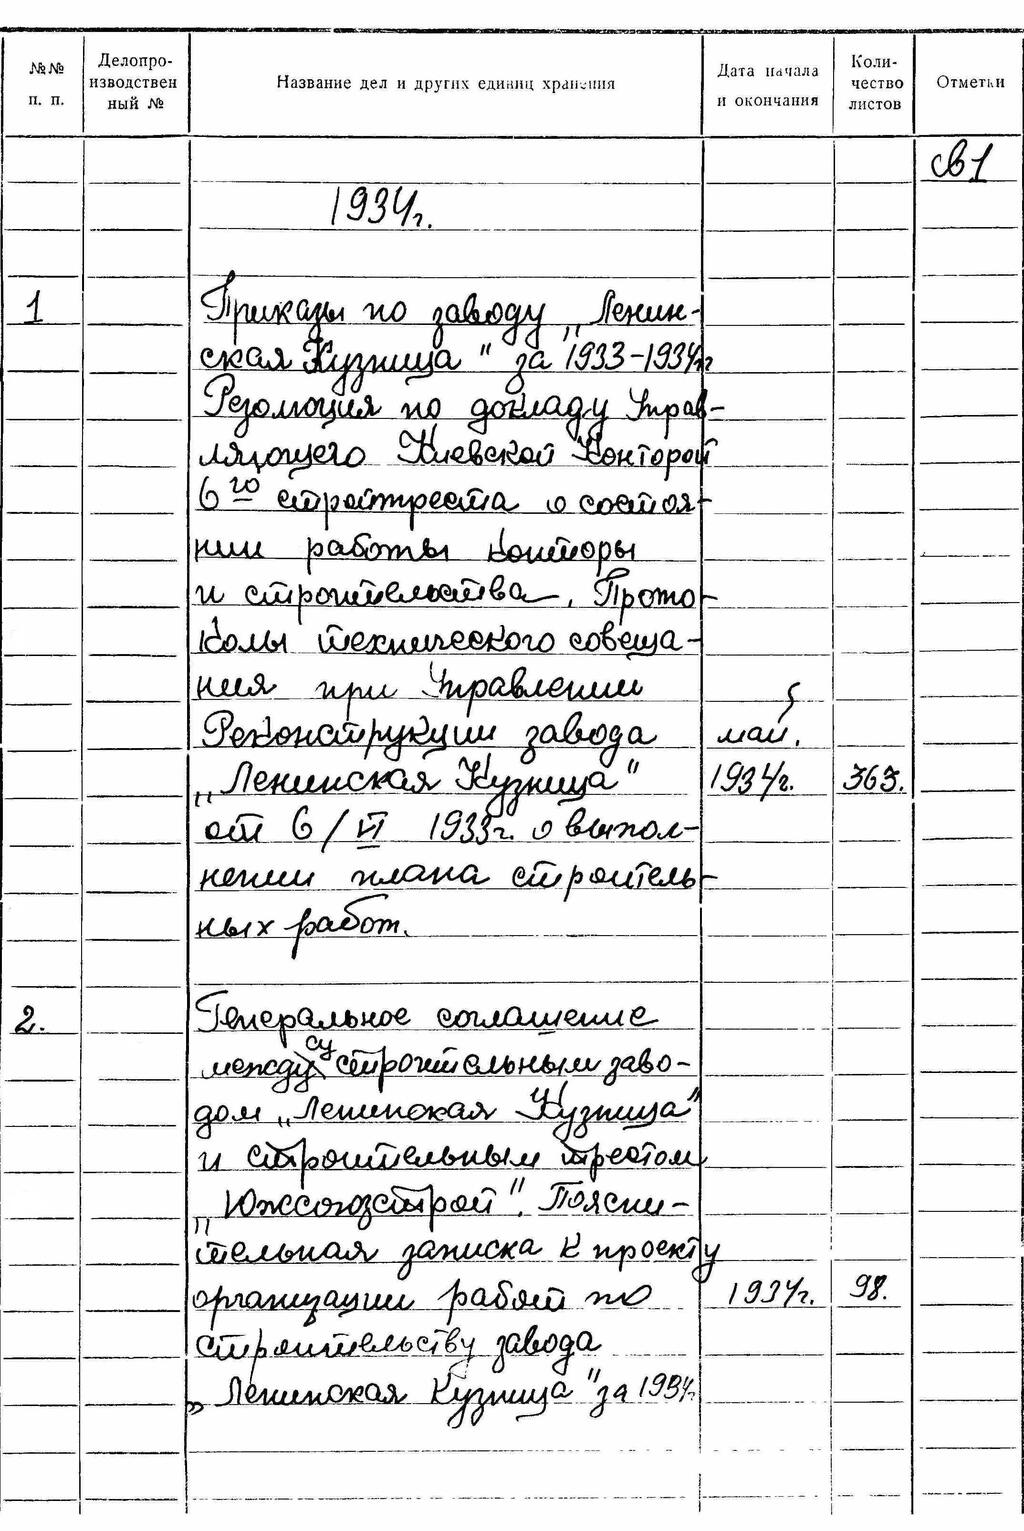 №№ п. п.
Делопро-
изводствен
ный №
Название дел и других единиц хранения
Дата начала
и окончания
Коли-
чество
листов
Отметки
св1
1934г.
1
Приказы по заводу „Ленин-
ская Кузница" за 1933-1934гг
Резолюция по докладу Управ-
ляющего Киевской Конторой
6го стройтреста о состоя-
нии работы конторы
и строительства. Прото-
колы технического совеща-
ния при Управлении
Реконструкции завода
май.
„Ленинская Кузница"
1934г.
363.
от 6/VI 1933г. о выпол-
нении плана строитель-
ных работ.
2.
Генеральное соглашение
между судостроительным заво-
дом „Ленинская Кузница"
и строительным трестом
„Южсоюзстрой". Поясни-
тельная записка к проекту
организации работ по
1934г.
98.
строительству завода
„Ленинская Кузница" за 1934г